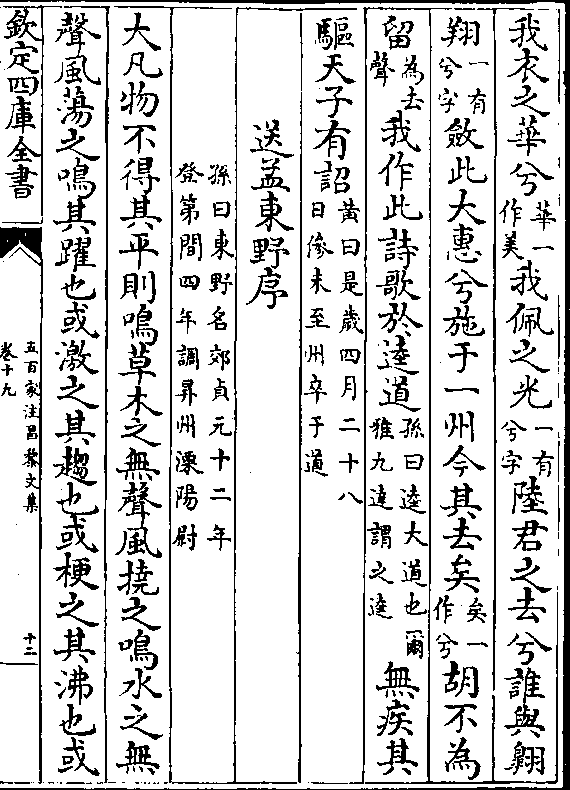 我衣之華兮華一作美我佩之光一有兮字陸君之去兮誰與翺
翔一有兮字斂此大惠兮施于一州今其去矣矣一作兮胡不為
留為去聲我作此詩歌於逵道孫曰逵大道也爾雅九達謂之逵無疾其
驅天子有詔黃曰是歲四月二十八日傪未至州卒于道
送孟東野序
孫曰東野名郊貞元十二年
登第間四年調昇州溧陽尉
大凡物不得其平則鳴草木之無聲風撓之鳴水之無
聲風蕩之鳴其躍也或激之其趨也或梗之其沸也或
欽定四庫全書
五百家注昌黎文集
卷十九
十二